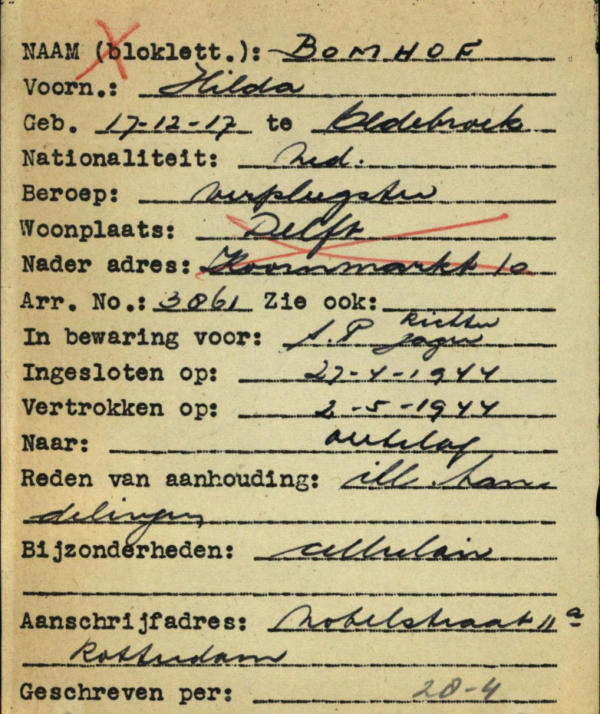 NAAM (bloklett.): BOMHOF
Voorn.: Hilda
Geb. 17-12-17 te Oldebroek
Nationaliteit: Ned.
Beroep: verpleegster
Woonplaats: Delft
Nader adres: Koornmarkt 10
Arr. No.: 3861 Zie ook:
In bewaring voor: S.P Richter Jager
Ingesloten op: 27-4-1944
Vertrokken op: 2-5-1944
Naar: ontslag
Reden van aanhouding: ill. han
delingen
Bijzonderheden: cellulair
Aanschrijfadres: Nobelstraat 11a
Rotterdam
Geschreven per: 28-4